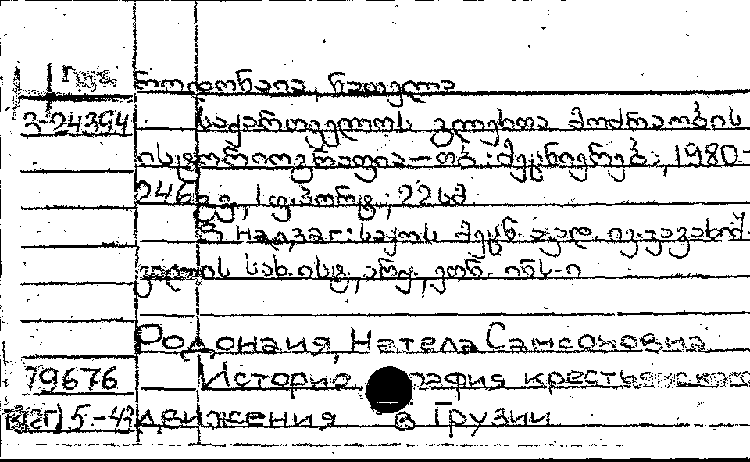 Груз როდონაია, ნათელა
3-24394 საქართველოს გლეხთა მოძრაობის
ისტორიოგრაფია – თბ.: მეცნიერებ., 1980-
246 გვ., 1 ფ.პორტ.; 22 სმ
В надзаг: საქ. სსრ მეცნ. აკად. ივ. ჯავახიშ
ვილის სახ. ისტ., არქ., ეთნ. ინს-ი
Родоная, Нателла Самсоновна
79676 Историография крестьянского
5.-43 движения в Грузии